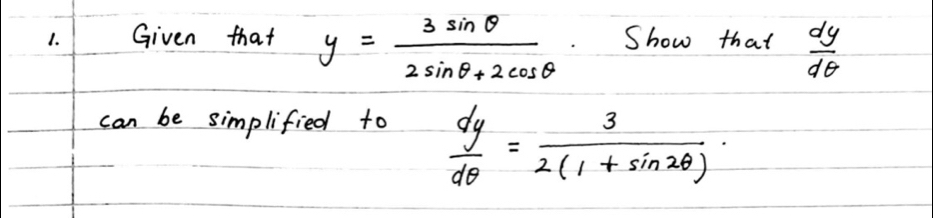 1. Given that y = 3 sin θ / (2 sin θ + 2 cos θ) . Show that dy/dθ
can be simplified to dy/dθ = 3 / (2(1 + sin 2θ)) .